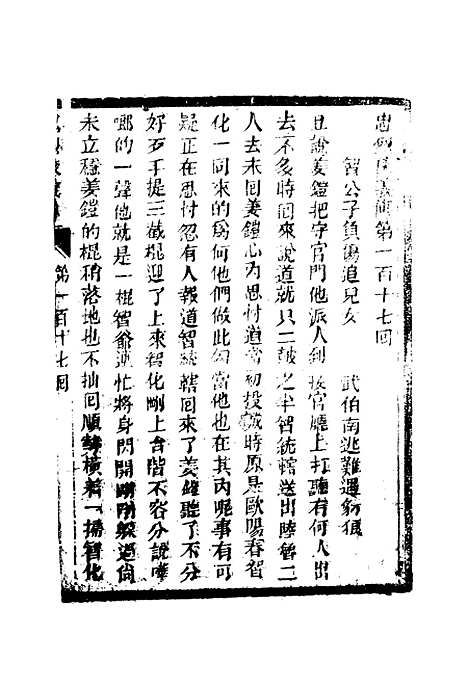 忠烈俠義傳第一百十七回
智公子負傷追兒女　武伯南逃難遇豺狼
且說姜鎧把守宮門他派人到接官廳上打聽有何人出
去不多時回來說道就只二皷之半智統轄送出陸魯二
人去未回姜鎧心內思忖道當初投誠時原是歐陽春智
化一同來的爲何他們做此勾當他也在其內呢事有可
疑正在思忖忽有人報道智統轄回來了姜鎧聽了不分
好歹手提三截棍迎了上來智化剛上台階不容分說嘩
啷的一聲他就是一棍智爺連忙將身閃開剛剛躲過尚
未立穩姜鎧的棍稍落地也不抽回順𫝑橫着一掃智化
第一百十七回